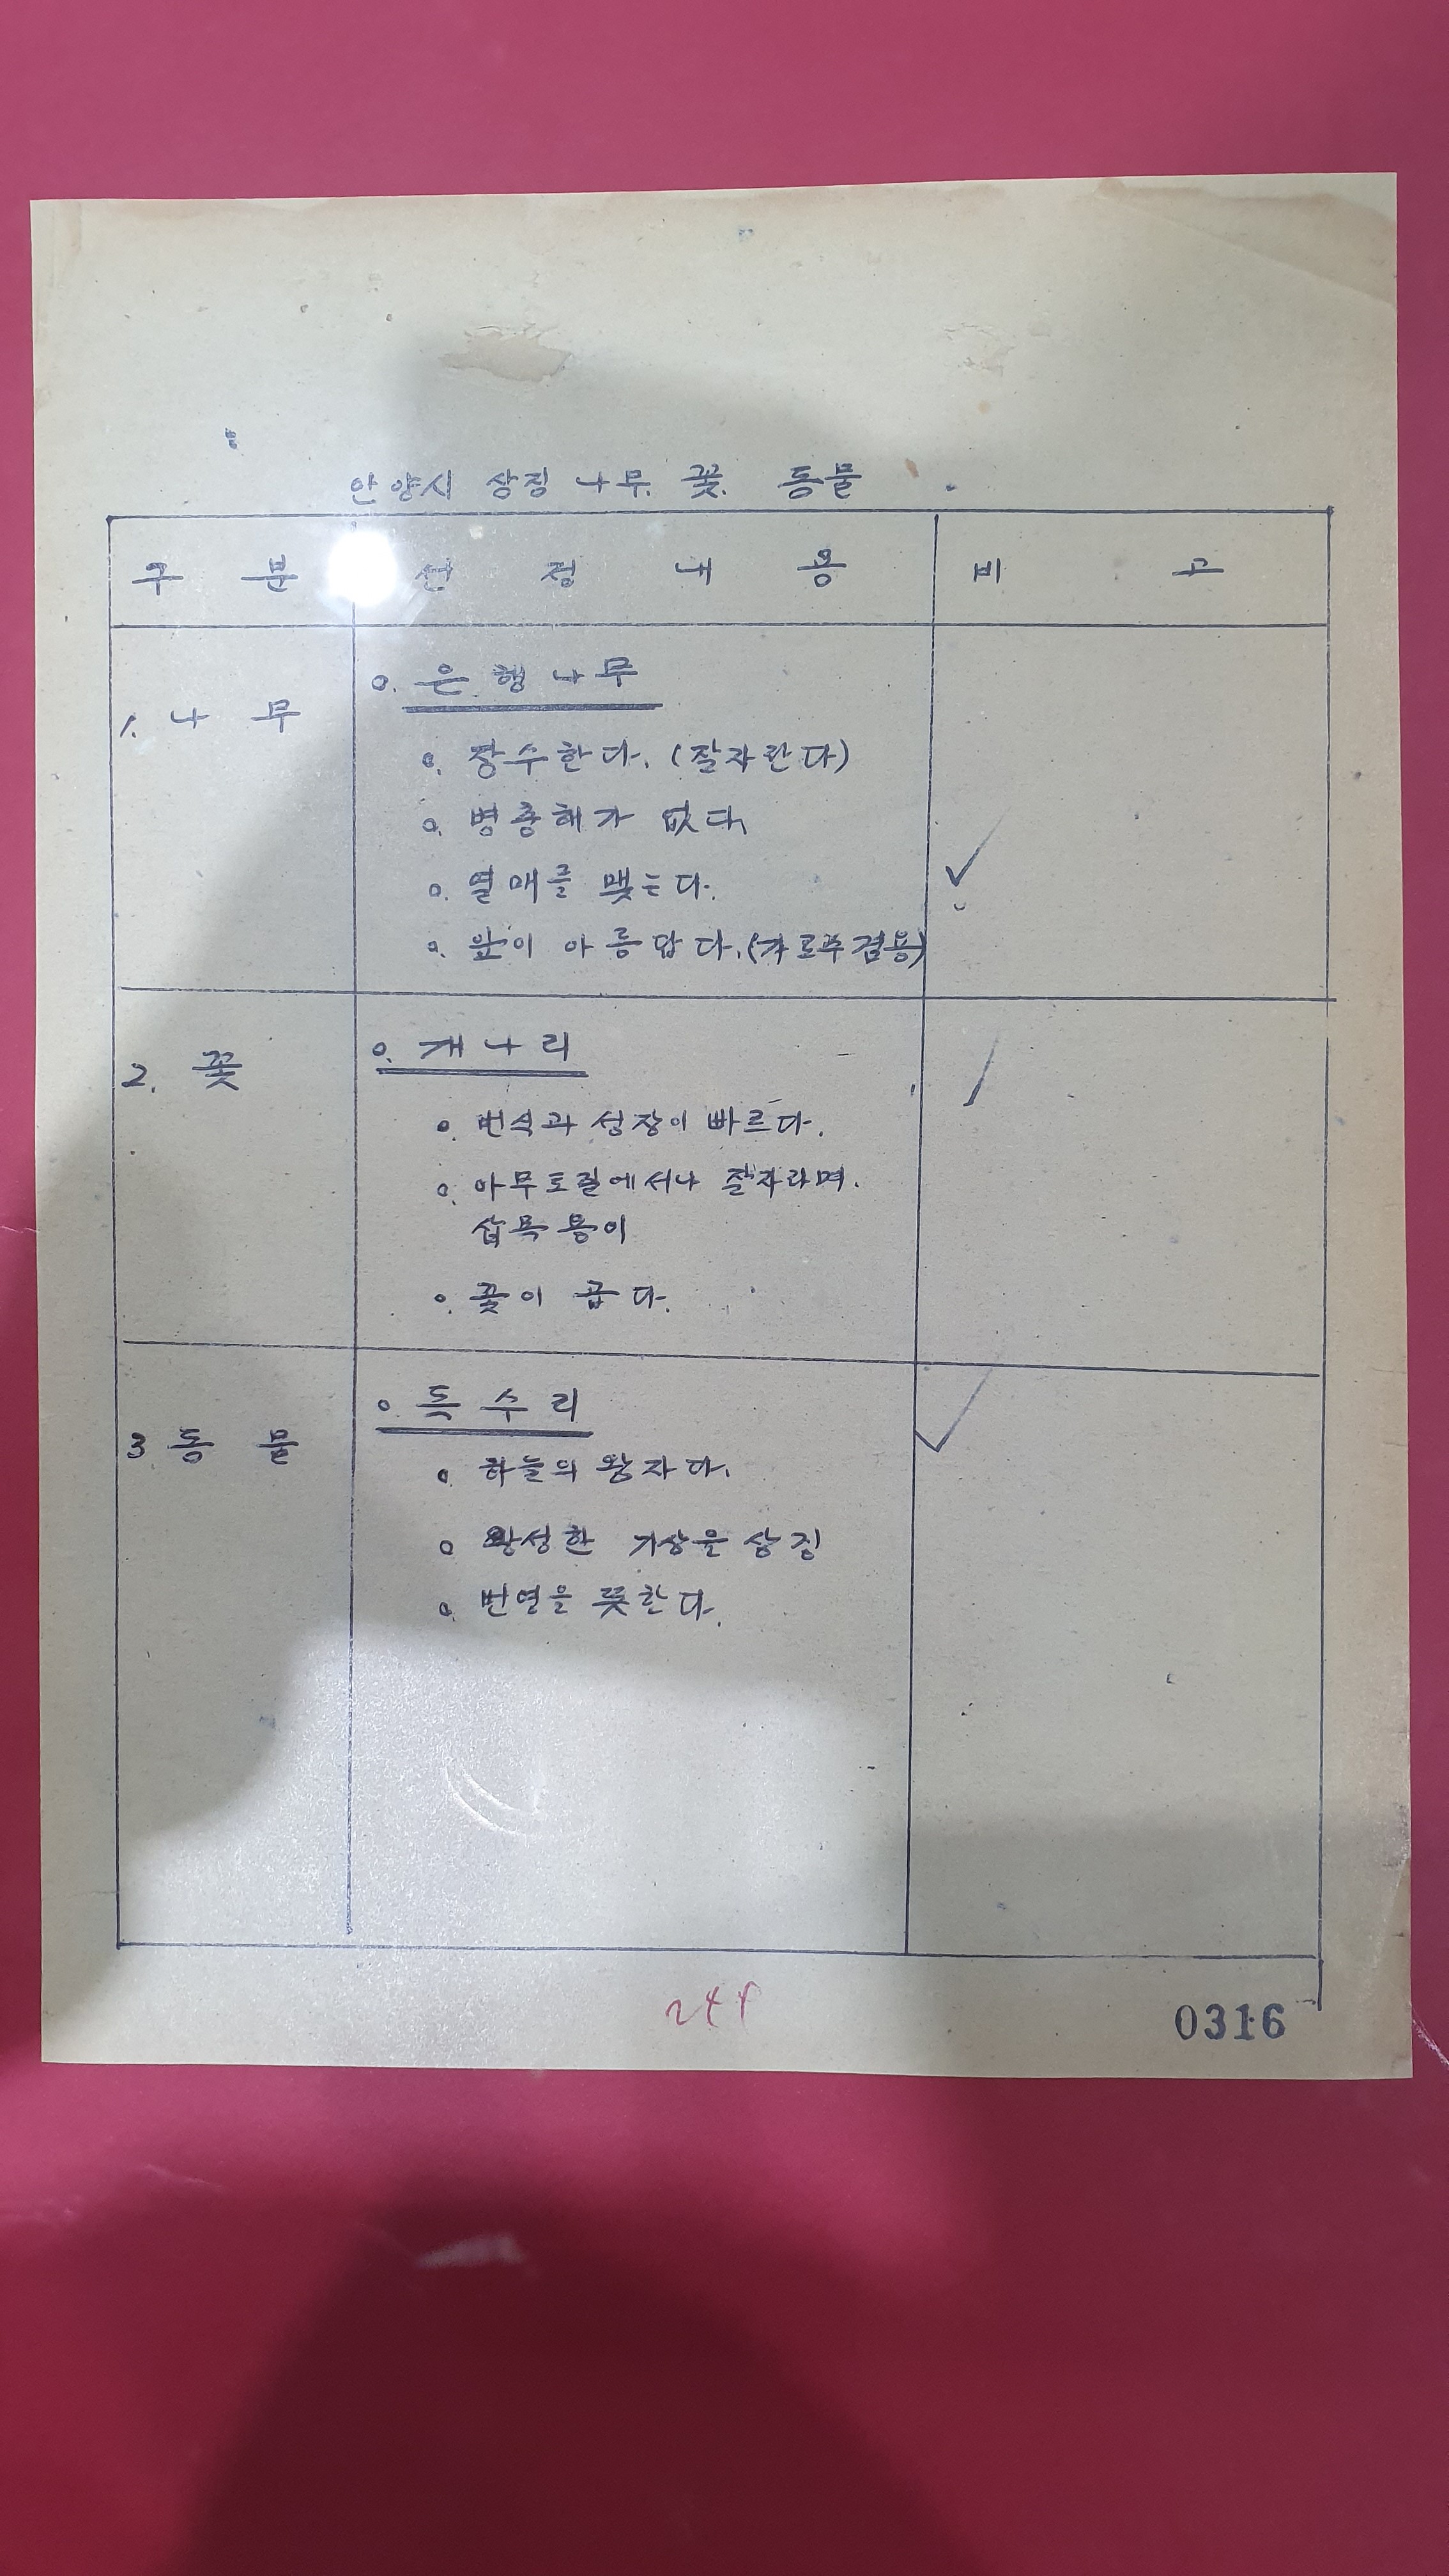 안양시 상징 나무. 꽃. 동물
구 분 선 정 내 용 비 고
1. 나 무
o. 은행나무
o. 장수한다. (잘자란다)
o. 병충해가 없다.
o. 열매를 맺는다.
o. 잎이 아름답다. (가로수겸용)
2. 꽃
o. 개나리
o. 번식과 성장이 빠르다.
o. 아무토질에서나 잘자라며.
삽목용이
o. 꽃이 곱다.
3 동 물
o. 독수리
o. 하늘의 왕자다.
o 왕성한 기상을 상징
o. 번영을 뜻한다.
0316